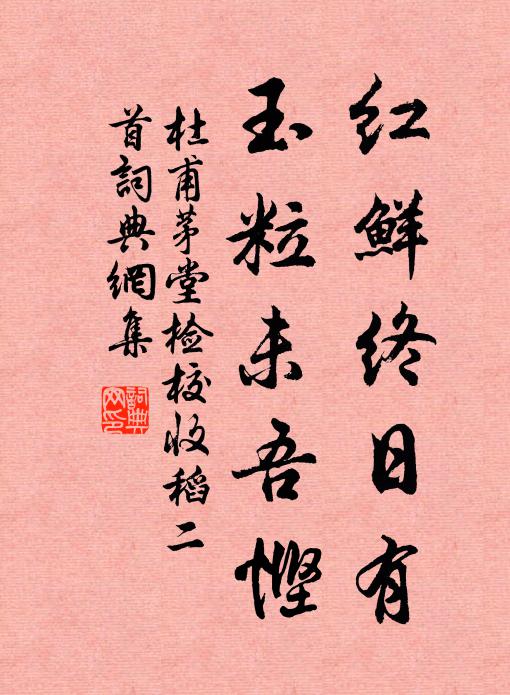 红鲜终日有
玉粒未吾慳
杜甫茅堂检校收稻二
首詞典網集
詞典
网印